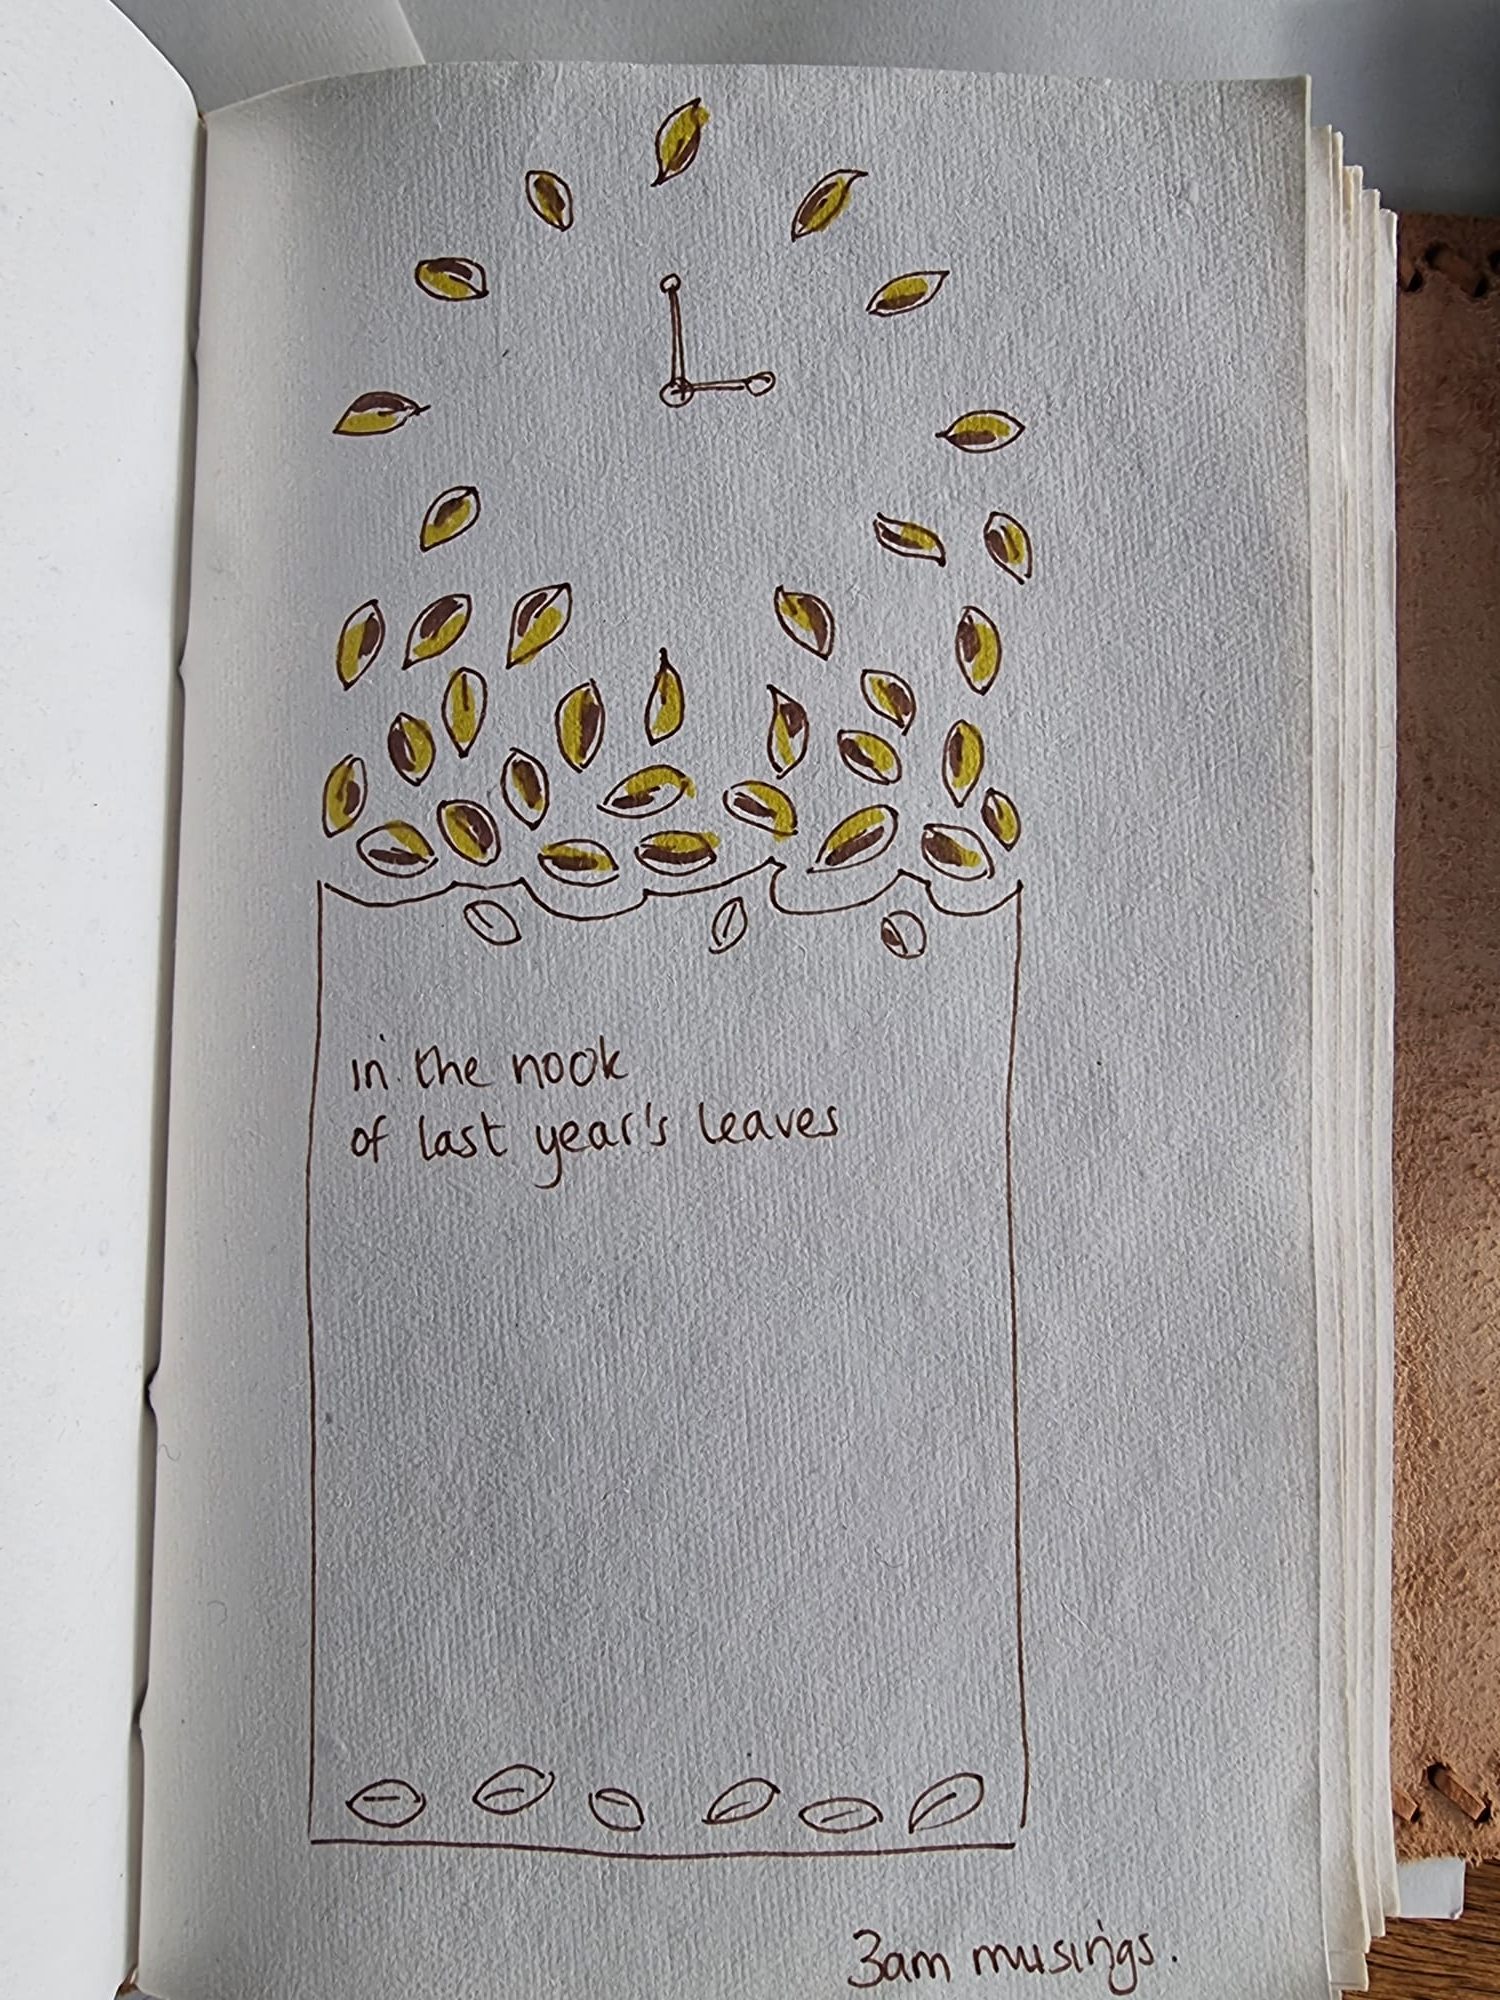 in the nook
of last year's leaves
3am musings.